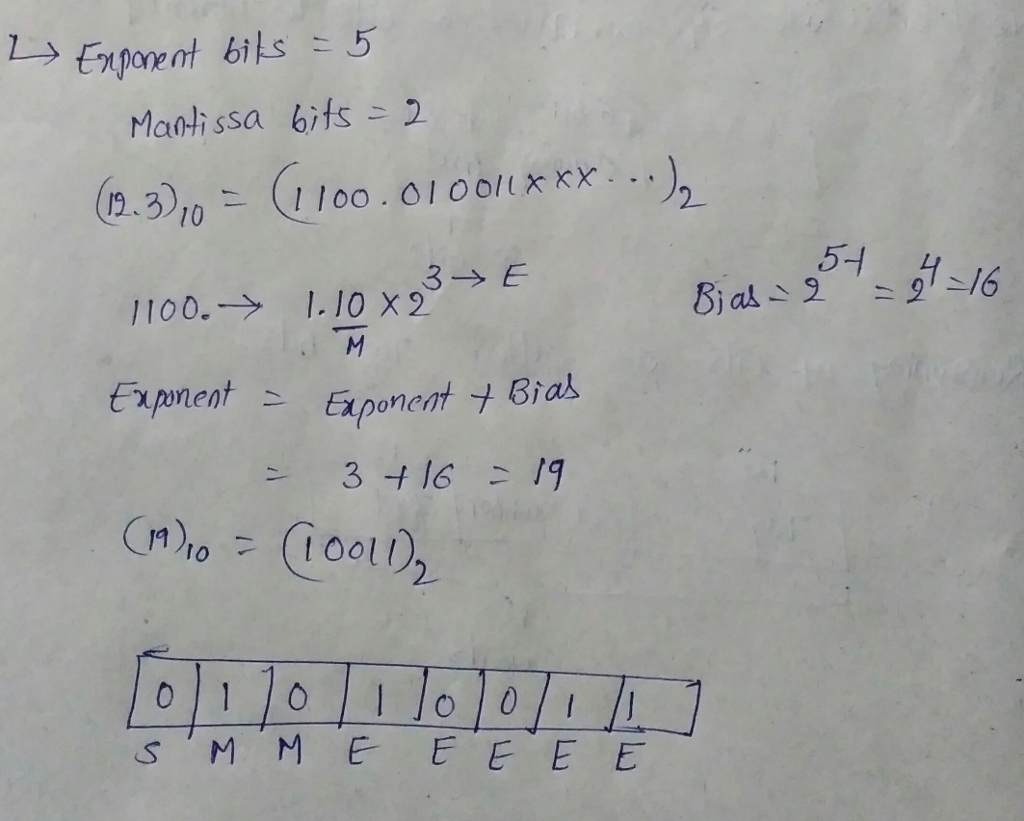 ↳ Exponent bits = 5
Mantissa bits = 2
(12.3)10 = (1100.010011xxx...)2
1100. → 1.10 x 2^3 → E
M
Bias = 2^5-1 = 2^4 = 16
Exponent = Exponent + Bias
= 3 + 16 = 19
(19)10 = (10011)2
0 1 0 1 0 0 1 1
S M M E E E E E